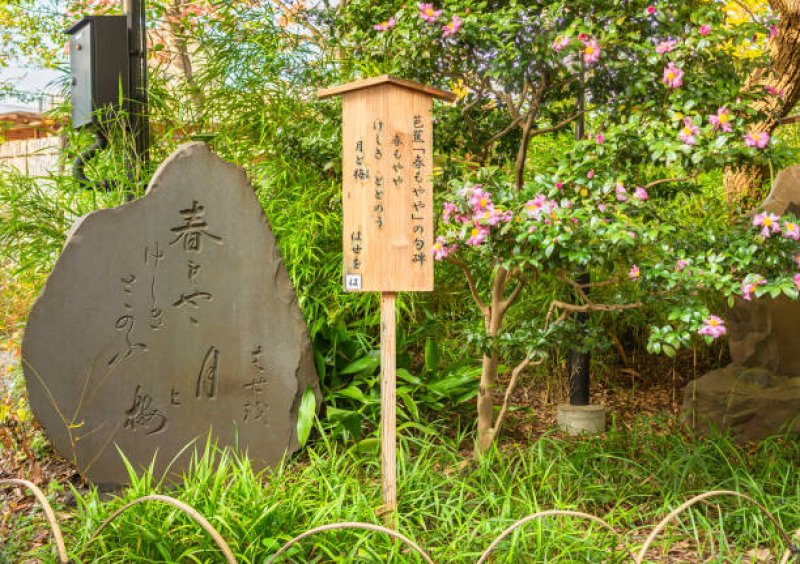 芭蕉「春もやや」の句碑
春もやや
けしき ととのう
月と梅
はせを
は
春もやゝ
けしき
とゝのふ
月と
梅
はせを